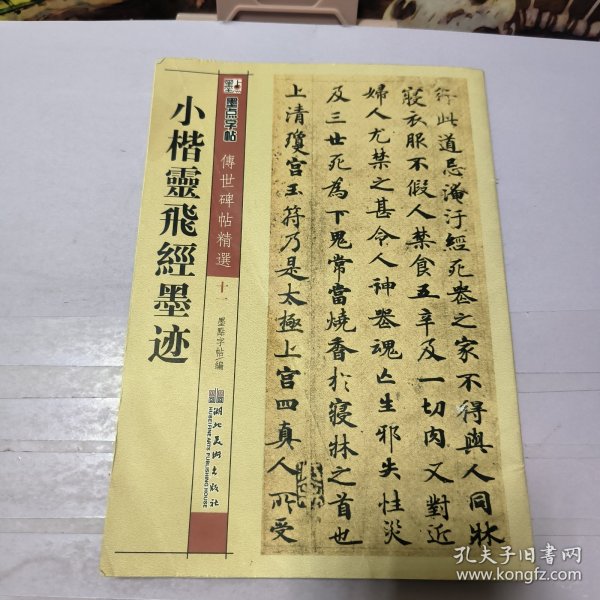 小楷靈飛經墨迹
墨点字帖
傳世碑帖精選
十一
墨點字帖/編
湖北美術出版社
HUBEI FINE ARTS PUBLISHING HOUSE
行此道忌淹汙經死丧之家不得與人同牀
寢衣服不假人禁食五辛及一切肉又對近
婦人尤禁之甚令人神丧魂亡生邪失性災
及三世死為下鬼常當燒香扵寢牀之首也
上清瓊宫玉符乃是太極上宫四真人所受
孔夫子旧书网
www.kongfz.com